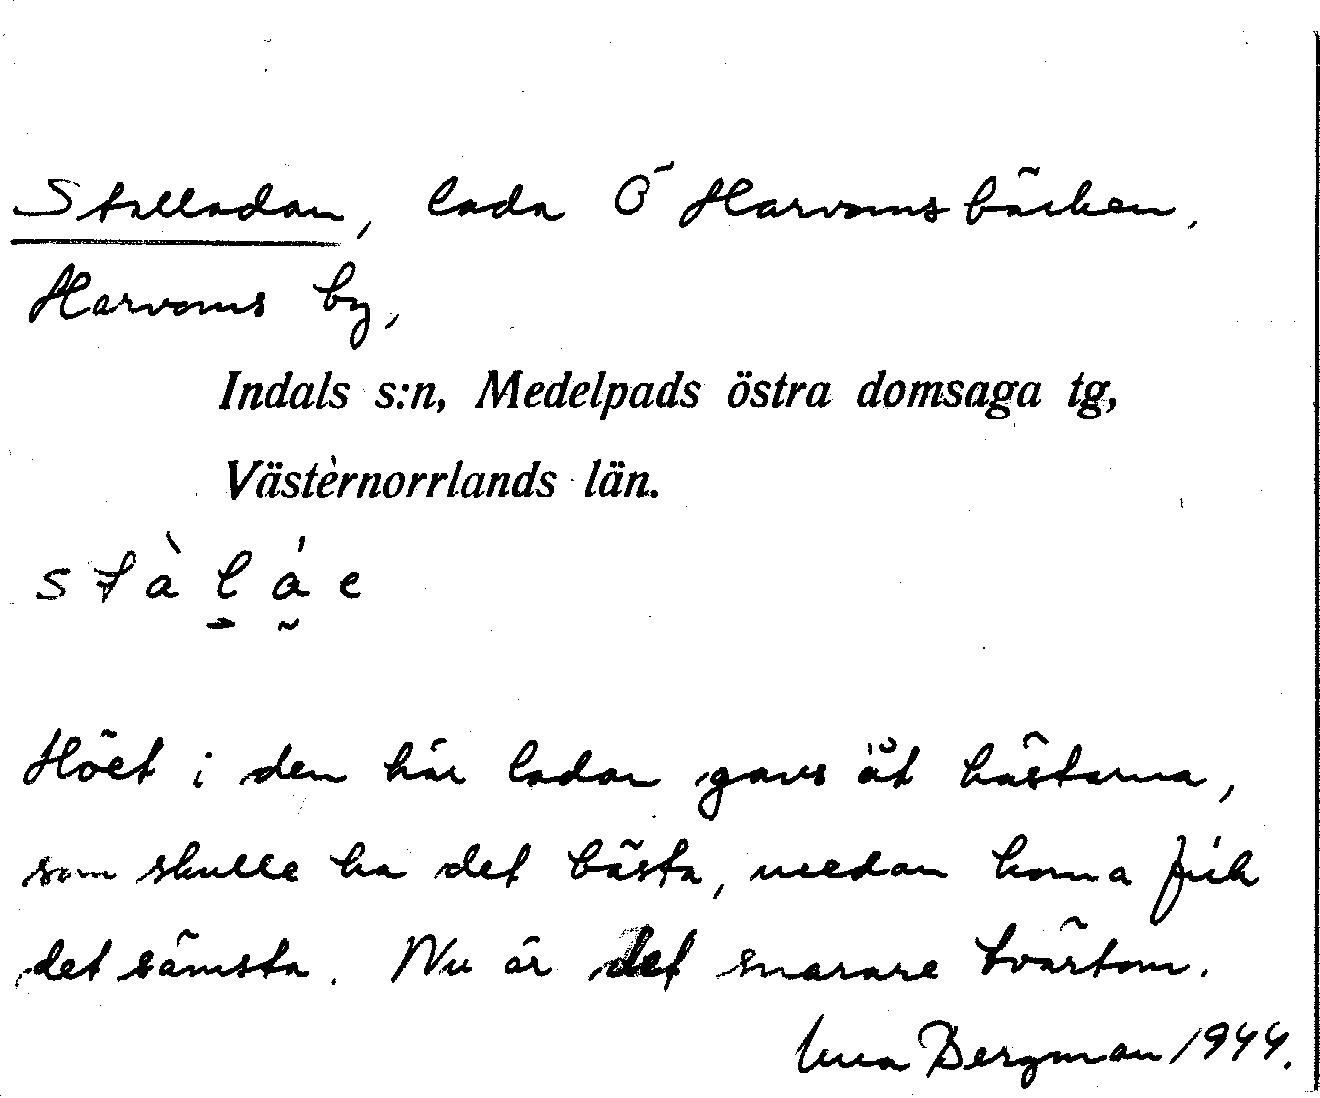 Stalladan, lada Ö Harvomsbäcken.
Harvoms by,
Indals s:n, Medelpads östra domsaga tg,
Västernorrlands län.
stàláe
Höet i den här ladan gavs åt hästarna,
som skulle ha det bästa, medan korna fick
det sämsta. Nu är det snarare tvärtom.
Bergman 1944.